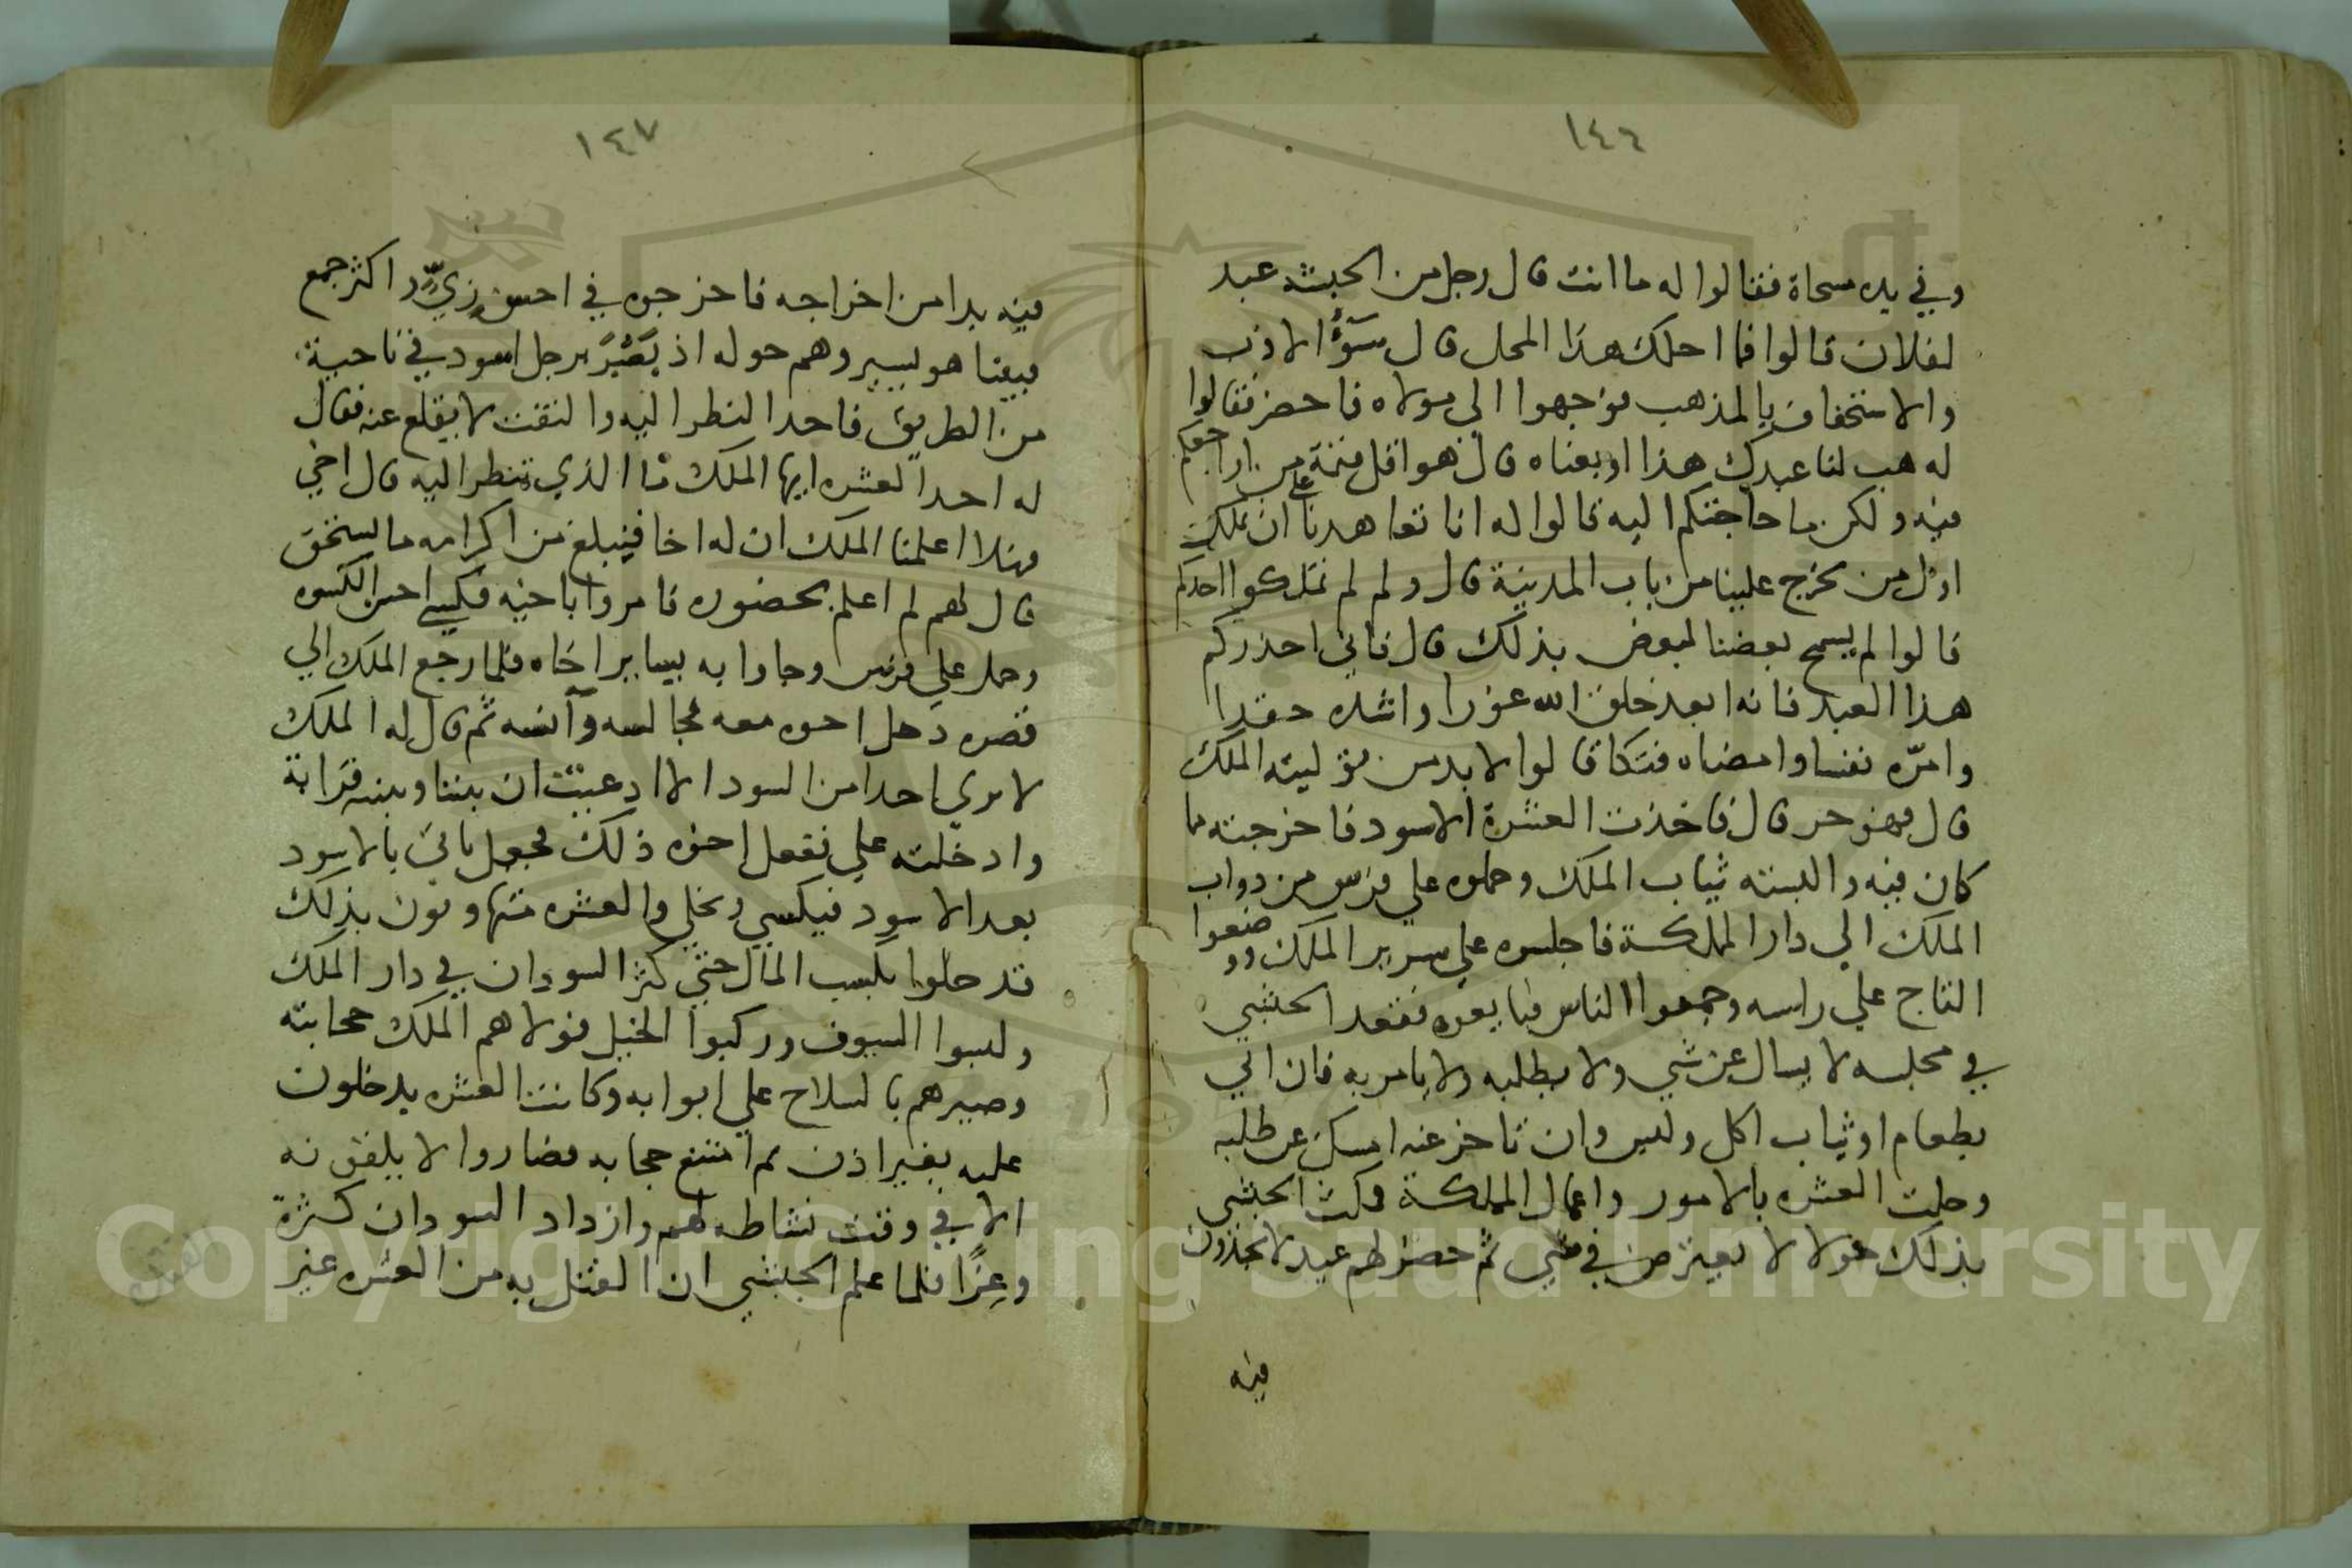 ١٤٦
وفي يده مسحاة فقالوا له ما انت قال رجل من الحبشة عبد
لفلان قالوا فما احلك هذا المحل قال سوء الادب
والاستخفاف بالمذهب فوجهوا الي مولاه فاحضر فقالوا
له هب لنا عبدك هذا او بعناه قال هو اقل قيمة من ان اراجعكم
فيه ولكن ما حاجتكم اليه قالوا له انا تعاهدنا علي ان نملك
اول من يخرج علينا من باب المدينة قال ولم لم تملكوا احدكم
قالوا لم يسمح بعضنا لبعض بذلك قال فاني احذركم
هذا العبد فانه ابعد خلق الله غورا واشده حقدا
وامره نفسا وامضاه قالوا لا بد من توليته الملك
قال فهو حر قال فاخذت العشرة الاسود فاخرجته مما
كان فيه والبسته ثياب الملك وحملوه علي فرس من دواب
الملك الي دار المملكة فاجلسوه علي سرير الملك ووضعوا
التاج علي راسه وجمعوا الناس فبايعوه فقعد الحبشي
في مجلسه لا يسال عن شي ولا يطلبه ولا يامر به فان اتي
بطعام او ثياب اكل ولبس وان تاخر عنه امسك عن طلبه
وخلت العشره بالامور واعمال المملكة فمكث الحبشي
بذلك حولا لا يعترض في شي ثم حضر لهم عيد لا يجدون
فيه
١٤٧
فيه بدا من اخراجه فاخرجوه في احسن زي واكثر جمع
فبينا هو يسير وهم حوله اذ بصر برجل اسود في ناحية
من الطريق فاحد النظر اليه والتفت لا يقلع عنه فقال
له احد العشره ايها الملك ما الذي تنظر اليه قال اخي
فهلا اعلمنا الملك ان له اخا فيبلغ من اكرامه ما يستحق
قال لهم لم اعلم بحضوره فامروا باخيه فكسي احسن الكسوه
وحمل علي فرس وجاوا به يساير اخاه فلما رجع الملك الي
قصره دخل اخوه معه فجالسه وآنسه ثم قال له الملك
لا تري احدا من السود الا ادعيت ان بيننا وبينه قرابة
وادخلته علي ففعل اخوه ذلك فجعل ياتي بالاسود
بعد الاسود فيكسي ويخلي والعشره متهاونون بذلك
قد خلوا بكسب المال حتي كثر السودان في دار الملك
ولبسوا السيوف وركبوا الخيل فولاهم الملك حجابته
وصيرهم بالسلاح علي ابوابه وكانت العشره يدخلون
عليه بغير اذن ثم امتنع حجابه فصاروا لا يلقونه
الا في وقت نشاطه لهم وازداد السودان كثرة
وعزا فلما علم الحبشي ان الفتل به من العشره غير